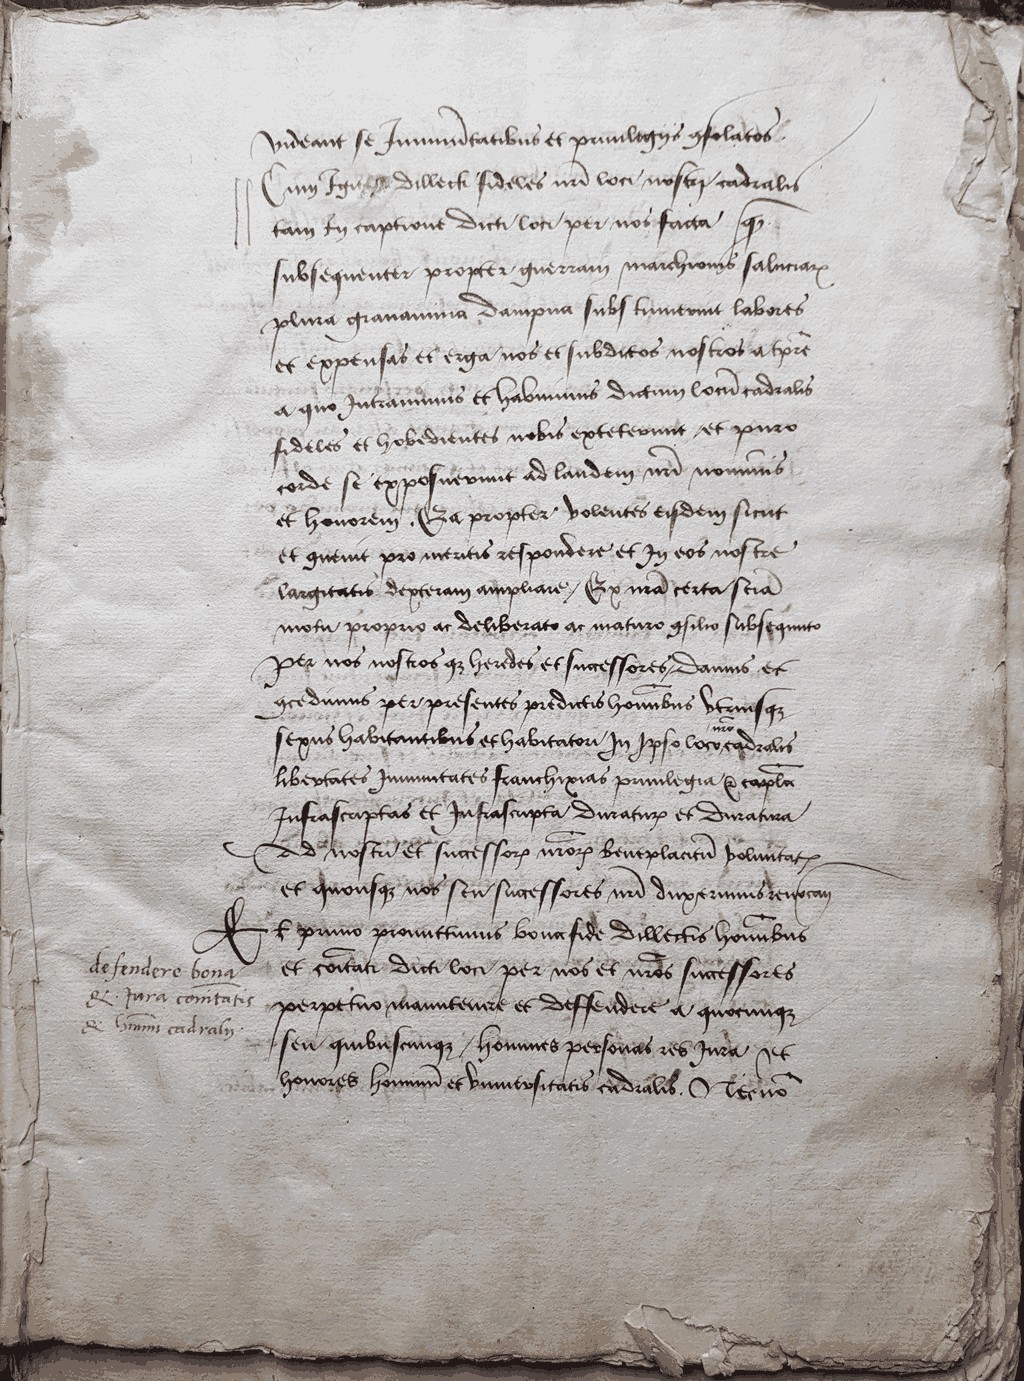 videant se Inmunitatibus et privilegijs gsolatos.
Cum dillecti fideles nrī loci nostri cadralis
tam In captione dicti loci per nos facta qz
subsequenter propter guerram marchionis saluciarꝝ
plura gravamina dampna subs tinuerunt labores
et expensas et erga nos et subditos nostros a tpre
a quo Intravimus et habuimus dictum locū cadralis
fideles et hobedientes nobis exteterunt et puro
corde se exposuerunt ad laudem nrī nominis
et honorem. Ea propter volentes eisdem sicut
et quenit pro meritis respondere et In eos nostre
largitatis dexteram ampliare / Ex nrā certa sciā
motu proprio ac deliberato ac maturo gsilio subsequuto
per nos nostros qz heredes et successores / Damus et
gcedimus per presentes predictis homībus vtriusqz
sexus habitantibus et habitatori In Ipso loco nrō cadralis
libertates Inmunitates franchixias privilegia & capla
Infrascriptas et Infrascripta duraturꝝ et duratura
Ad nostri et successorꝝ nrōrꝝ beneplacitū voluntatꝝ
et quousqz nos seu successores nrī duxerimus revocan
Et primo promittimus bona fide dillectis homībus
et coītati dicti loci per nos et nrōs successores
perpetuo manutenere et deffendere a quocumqz
seu quibuscumqz / homines personas res Iura et
honores hominū et vniversitatis cadralis. O Itē
defendere bona
& Jura comītatis
& hmīni cadralis